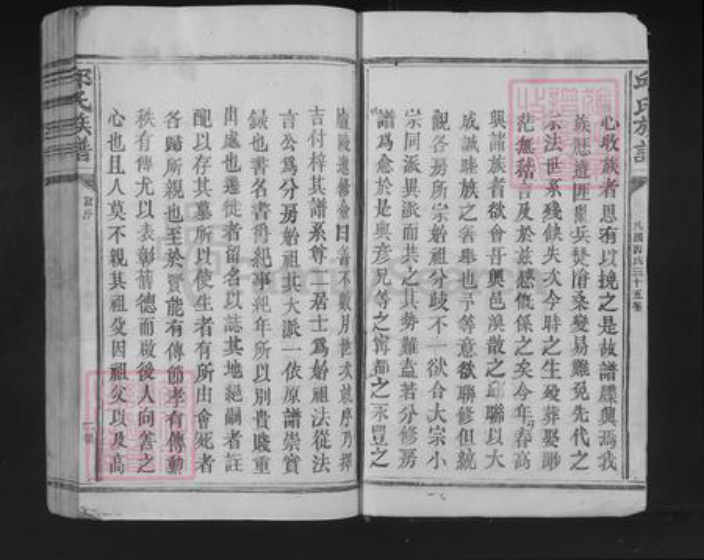 邱氏族譜
心收族者思有以挽之是故譜牒興焉我
族歷遭匪亂兵燹滄桑變易難免先代之
宗法世系殘缺失次今時之生歿葬娶渺
茫無稽言及於茲感慨係之矣今年春高
興諸族者欲會吾輿邑渙散之邱聯以大
成誠睦族之善舉也予等意欲聯修但統
觀各房所宗始祖分歧不一欲合大宗小
宗同派異派而共之其勢難盍若分修房
譜爲愈於是與彥兄等之寧都之永豐之
廬陵進修僉曰善不數月世次就序乃擇
吉付梓其譜系尊二居士爲始祖法從法
言公爲分房始祖其大派一依原譜崇實
錄也書名書爵紀事紀年所以別貴賤重
出處也遷徙者留名以誌其地絕嗣者註
配以存其墓所以使生者有所由會死者
各歸所親也至於賢能有傳節孝有傳勳
秩有傳尤以表彰舊德而啟後人向善之
心也且人莫不親其祖父因祖父以及高
邱氏族譜